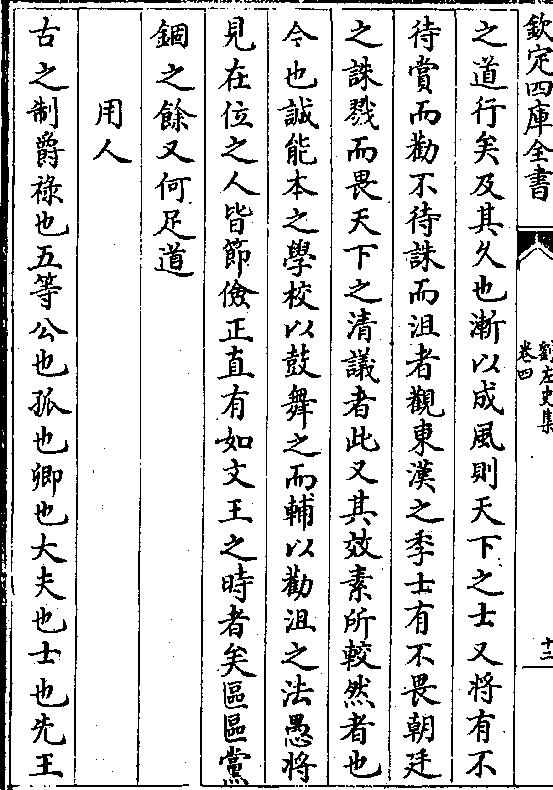 欽定四庫全書
劉左史集
卷四
十二
之道行矣及其久也漸以成風則天下之士又將有不
待賞而勸不待誅而沮者觀東漢之季士有不畏朝廷
之誅戮而畏天下之清議者此又其效素所較然者也
今也誠能本之學校以鼓舞之而輔以勸沮之法愚將
見在位之人皆節儉正直有如文王之時者矣區區黨
錮之餘又何足道
用人
古之制爵祿也五等公也孤也卿也大夫也士也先王